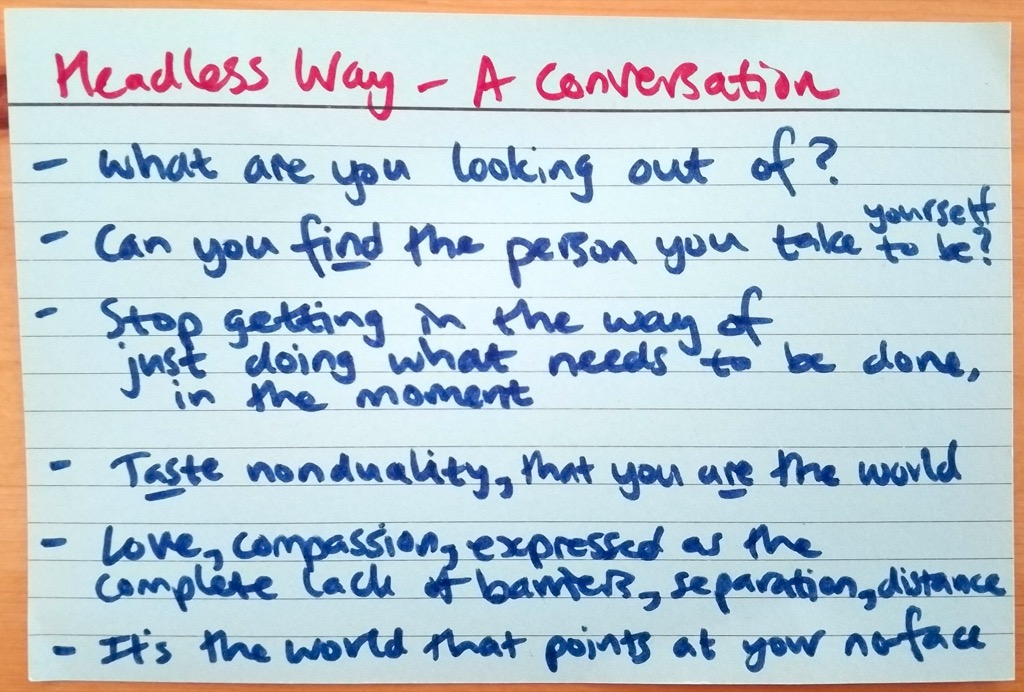 Headless Way - A Conversation
- What are you looking out of?
- Can you find the person you take yourself to be?
- Stop getting in the way of
just doing what needs to be done,
in the moment
- Taste nonduality, that you are the world
- Love, compassion, expressed as the
complete lack of barriers, separation, distance
- It's the world that points at your no-face